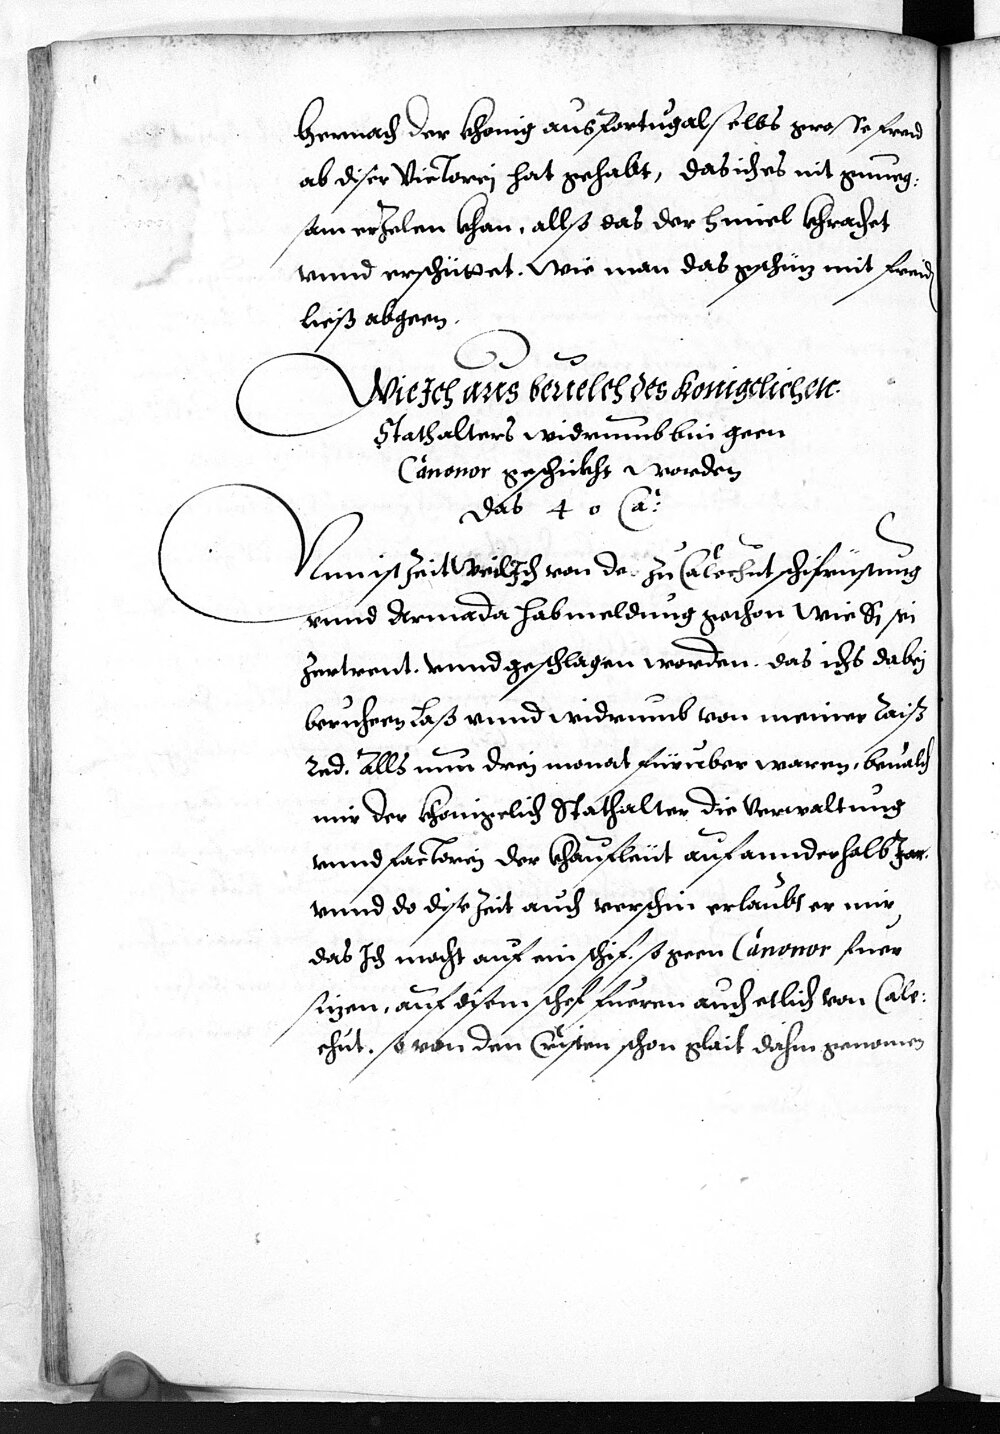 hernach der khonig aus Portugal selbs grosse freid
ab diser Victorej hat gehabt, das ich es nit gnueg:
sam erzelen khan, allso das der himel khrachet
vnnd erschüttet. Wie man das gschüz mit freid
ließ abgeen.
Wie Ich aus beuelch des koniglichen
Stathalters widrumb bin geen
Canonor geschikht worden
Das 40 Ca:
Nun ist Zeit Weil Ich von de Zu Calechut schifrüstung
vnnd Armada hab meldung gethon Wie Sy sei
Zertrent. vnnd geschlagen worden. das ichs dabej
berucheen laß vnnd widrumb von meiner Raiß
Red. Alls nun drej monat fürüber waren, beualch
mir der khonigelich Stathalter die Verwaltung
vnnd factorej der khaufleüt auf annderhalb Jar.
vnnd do dise Zeit auch verschin erlaubt er mir
das Ich mecht auf ein schif. so geen Canonor fuer
sizen, auf disem schef fueren auch etlich von Cale:
chut. so von den Cristen schon glait dahin genomen